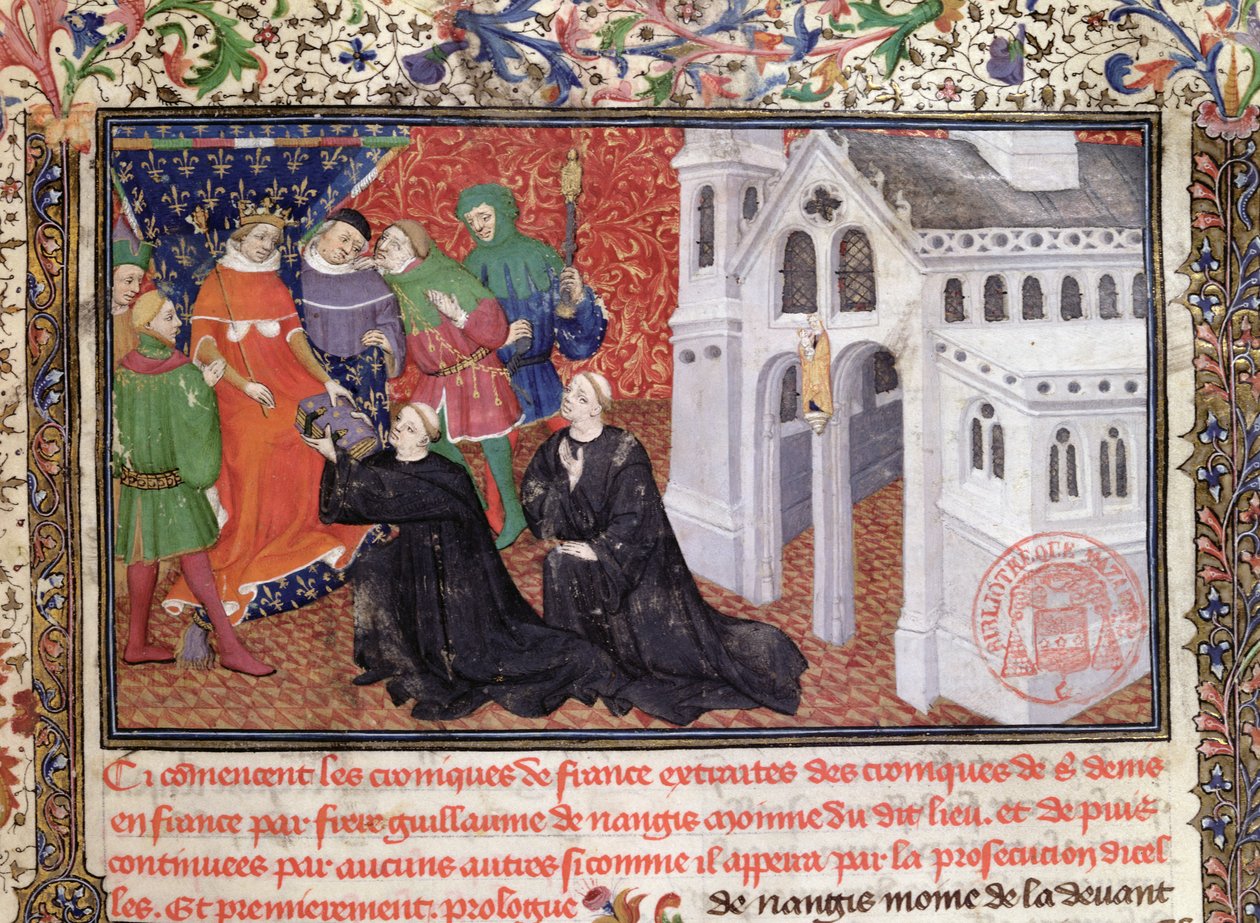 Ci comencent les croniques de france extraites des croniques de s. denis
en france par frere guillaume de nangis moinne du dit lieu. et de puis
continuees par aucuns autres si comme il appeira par la prosecucion dicel
les. Et premierement. prologue
de nangis moine de la devant
BIBLIOTHEQUE MAZARINE